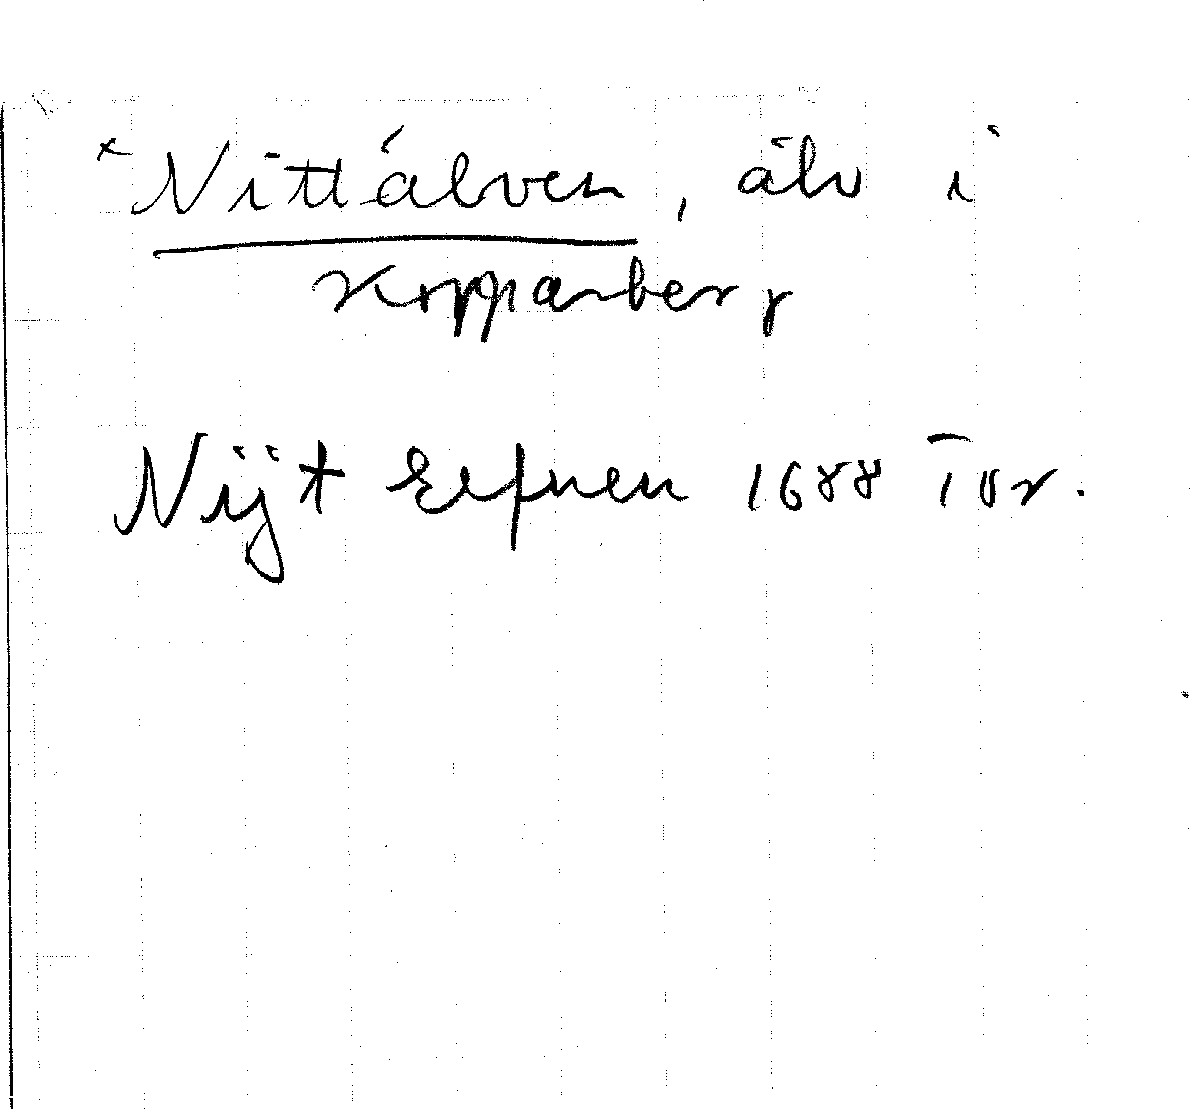 × Nittälven, älv i
Kopparberg
Nijt Elfwen 1688 Tor.